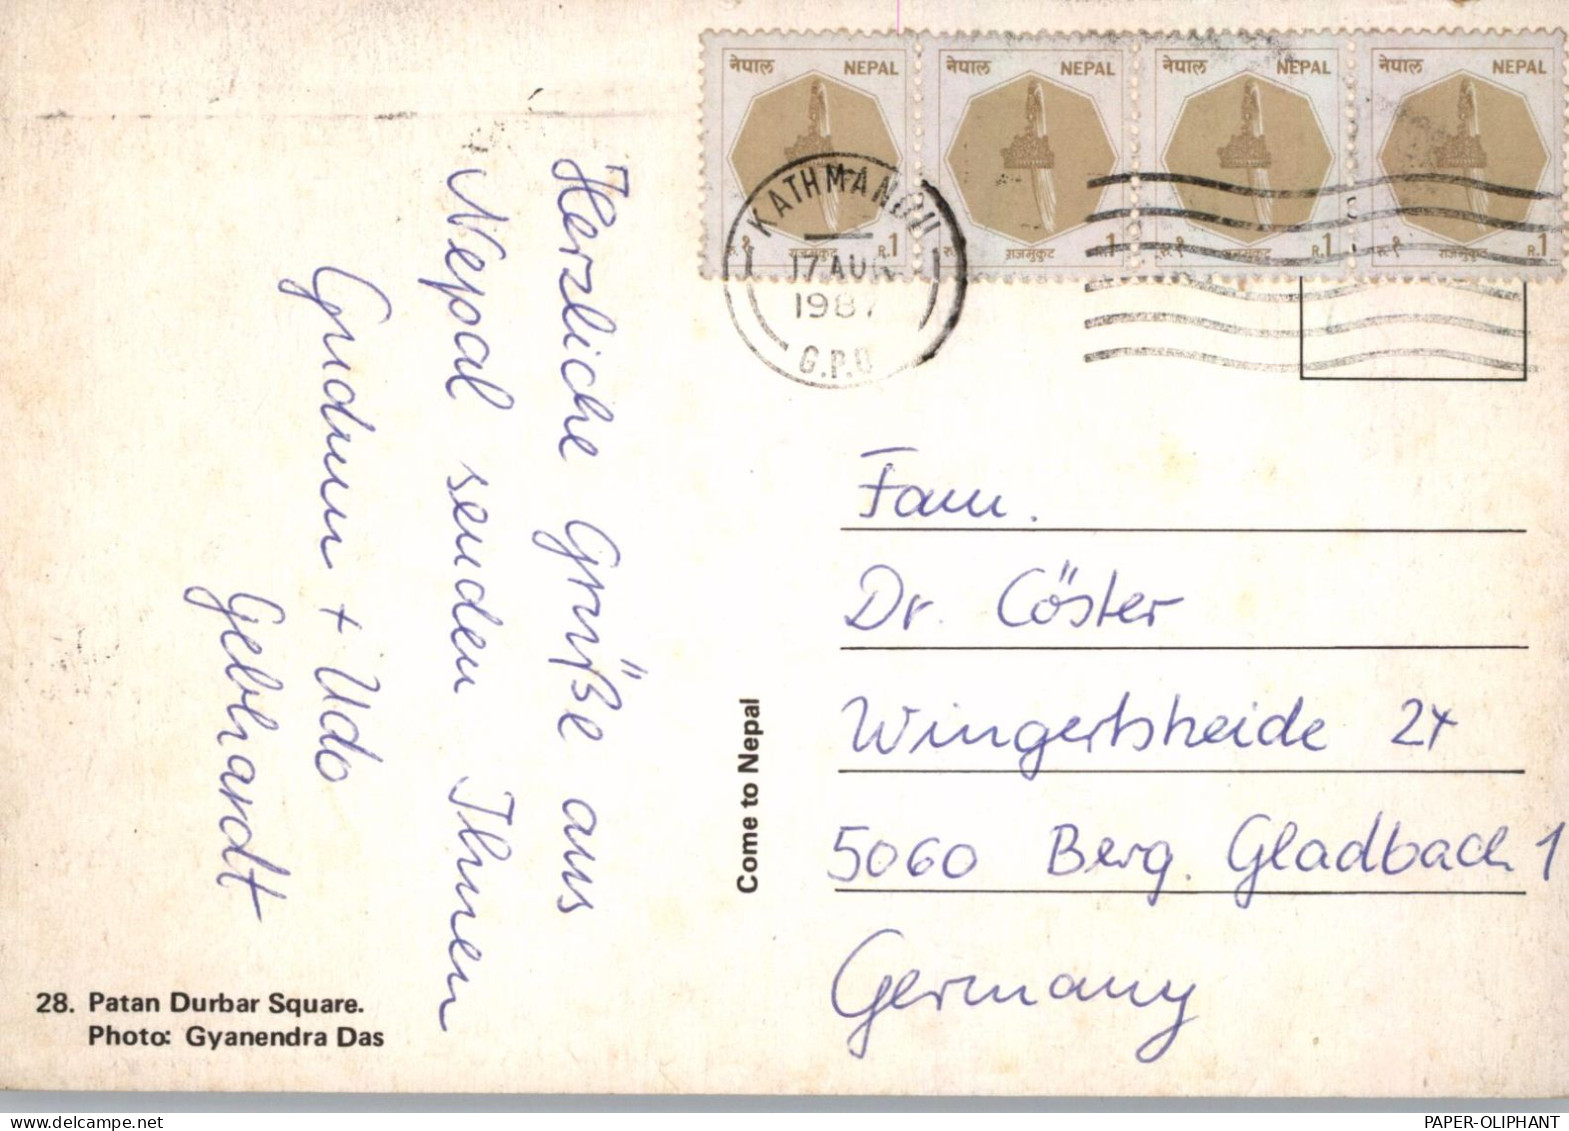 नेपाल NEPAL नेपाल NEPAL नेपाल NEPAL नेपाल NEPAL
रु.१ राजमुकुट R.1 रु. राजमुकुट 1 रु.१ राजमुकुट R.1 रु.१ राजमुकुट R.1
KATHMANDU
17 AUG
1987
G.P.O
Herzliche Grüße aus
Nepal senden Ihnen
Gudrun + Udo
Gebhardt
Come to Nepal
Fam.
Dr. Cöster
Wingertsheide 24
5060 Berg. Gladbach 1
Germany
28. Patan Durbar Square.
Photo: Gyanendra Das
delcampe.net
PAPER-OLIPHANT